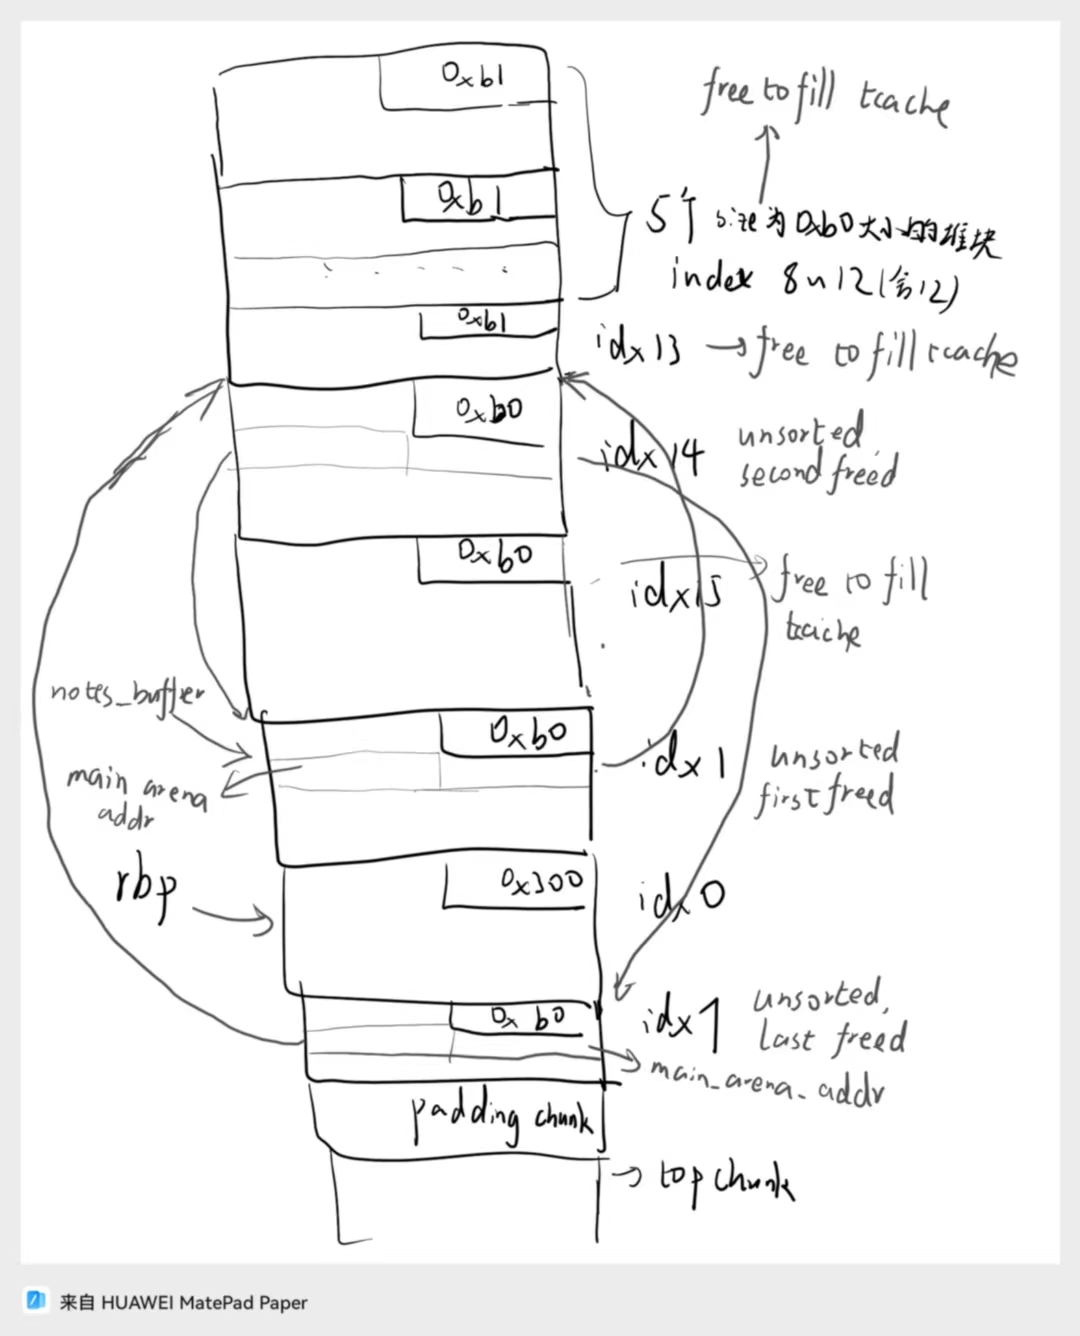 0xb1
free to fill tcache
0xb1
5个 size为0xb0大小的堆块
index 8~12(含12)
0xb1
idx13 → free to fill tcache
0xb0
idx14
unsorted
second freed
0xb0
idx15
free to fill
tcache
notes_buffer
0xb0
idx1
unsorted
first freed
main arena
addr
rbp
0x300
idx0
0x b0
idx7
unsorted,
last freed
main_arena_addr
padding chunk
→ top chunk
来自 HUAWEI MatePad Paper